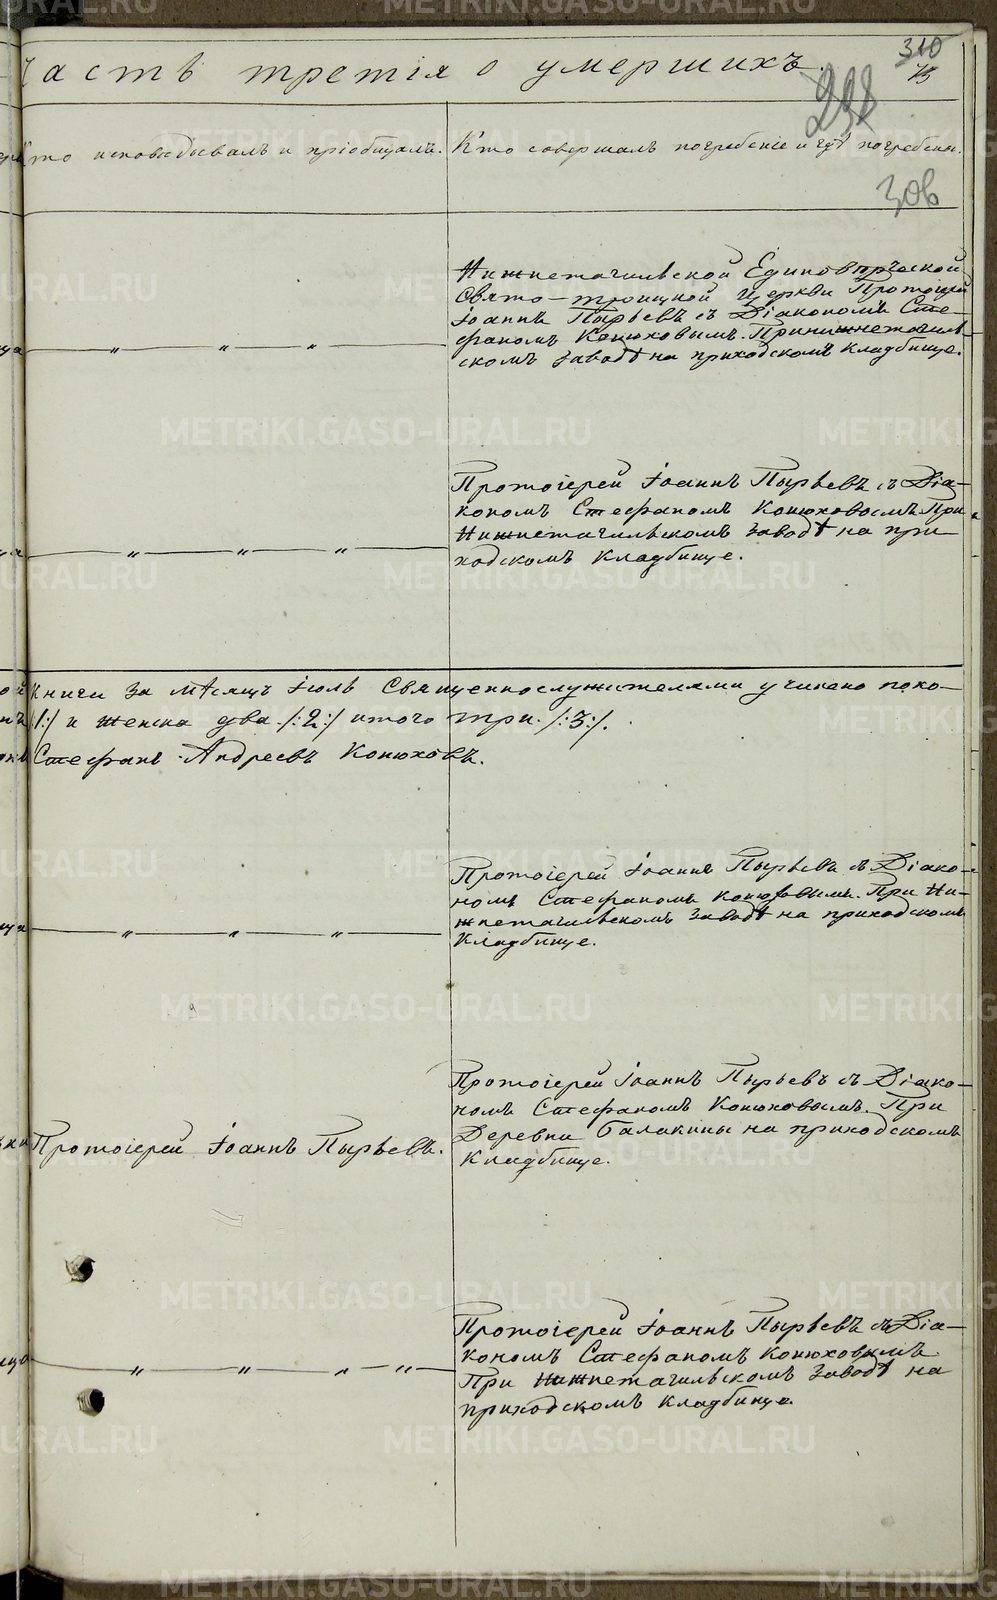 Часть третія о умершихъ.
310
75
298
306
Кто исповѣдывалъ и пріобщалъ.
Кто совершалъ погребеніе и гдѣ погребены.
Нижнетагильской Единовѣрческой
Свято-троицкой Церкви Протоіерей
Іоаннъ Пырьевъ съ Діакономъ Сте-
фаномъ Конюховымъ. При нижнетагиль-
скомъ заводѣ на приходскомъ кладбище.
ца — „ — „ — „ —
Протоіерей Іоаннъ Пырьевъ съ Діа-
кономъ Стефаномъ Конюховымъ При
Нижнетагильскомъ заводѣ на при-
ходскомъ кладбище.
ца — „ — „ — „ —
ой книги за мѣсяцъ Іюль Священнослужителями учинено поко-
/:1:/ и женска два /:2:/ итого три /:3:/.
Стефанъ Андреевъ Конюховъ.
Протоіерей Іоаннъ Пырьевъ съ Діако-
номъ Стефаномъ Конюховымъ. При Ни-
жнетагильскомъ заводѣ на приходскомъ
кладбище.
ца — „ — „ — „ —
Протоіерей Іоаннъ Пырьевъ съ Діако-
номъ Стефаномъ Конюховымъ. При
Деревни Балакины на приходскомъ
кладбище.
Протоіерей Іоаннъ Пырьевъ.
Протоіерей Іоаннъ Пырьевъ съ Діа-
кономъ Стефаномъ Конюховымъ
При Нижнетагильскомъ заводѣ на
приходскомъ кладбище.
ца — „ — „ — „ — „ —
METRIKI.GASO-URAL.RU